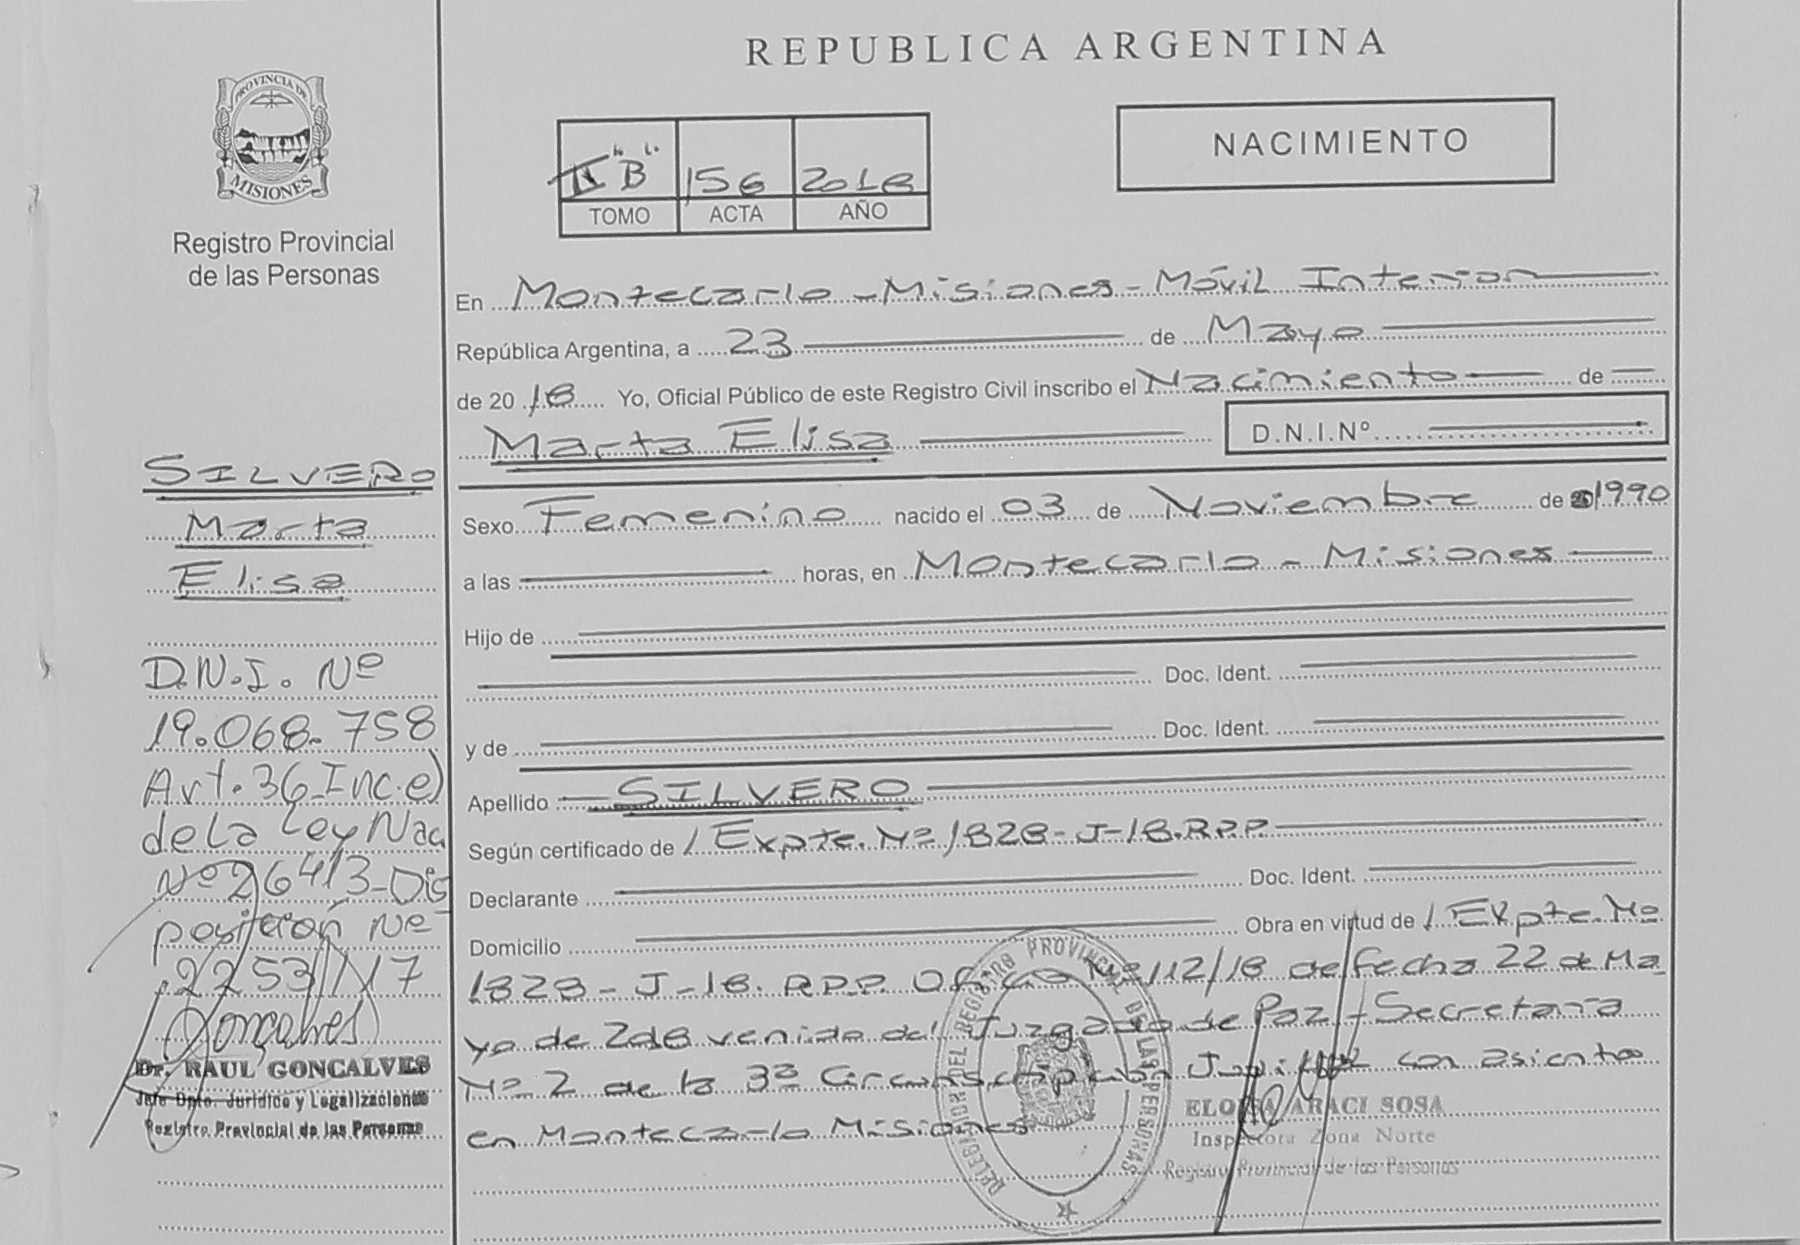 REPUBLICA ARGENTINA
PROVINCIA DE
MISIONES
Registro Provincial
de las Personas
"B" 156 2018
TOMO ACTA AÑO
NACIMIENTO
En Montecarlo - Misiones - Móvil Interior
República Argentina, a 23 de Mayo
de 2018 Yo, Oficial Público de este Registro Civil inscribo el Nacimiento de
Marta Elisa D.N.I.Nº
Sexo Femenino nacido el 03 de Noviembre de 1990
a las horas, en Montecarlo - Misiones
Hijo de
Doc. Ident.
y de Doc. Ident.
Apellido SILVERO
Según certificado de / Expte. Nº 1828-J-18.R.P.P.
Declarante Doc. Ident.
Domicilio Obra en virtud de / Expte. Nº
1828-J-18. R.P.P. Oficio Nº 112/18 de fecha 22 de Ma
yo de 2018 venido del Juzgado de Paz - Secretaria
Nº 2 de la 3ª Circunscripción con asiento
en Montecarlo Misiones
SILVERO
Marta
Elisa
D.N.I. Nº
19.068.758
Art. 36 Inc. e)
de la Ley Nac.
Nº 26413-Dis
posición Nº
2253/17
Goncalves
Dr. RAUL GONCALVES
Jefe Dpto. Jurídico y Legalizaciones
Registro Provincial de las Personas
DEL REGISTRO PROVINCIAL DE LAS PERSONAS
ELOISA ARACI SOSA
Inspectora Zona Norte
Registro Provincial de las Personas